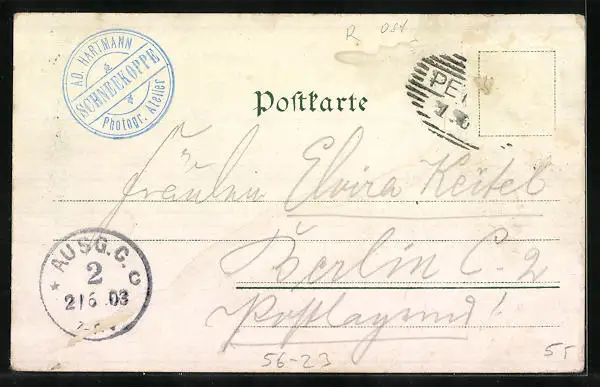 R Ost
AD. HARTMANN
SCHNEEKOPPE
Photogr. Atelier
PE
Postkarte
Fräulein Elvira Keitel
Berlin C. 2
Postlagernd!
AUSG. C. C
2
2/6 03
56-23
55